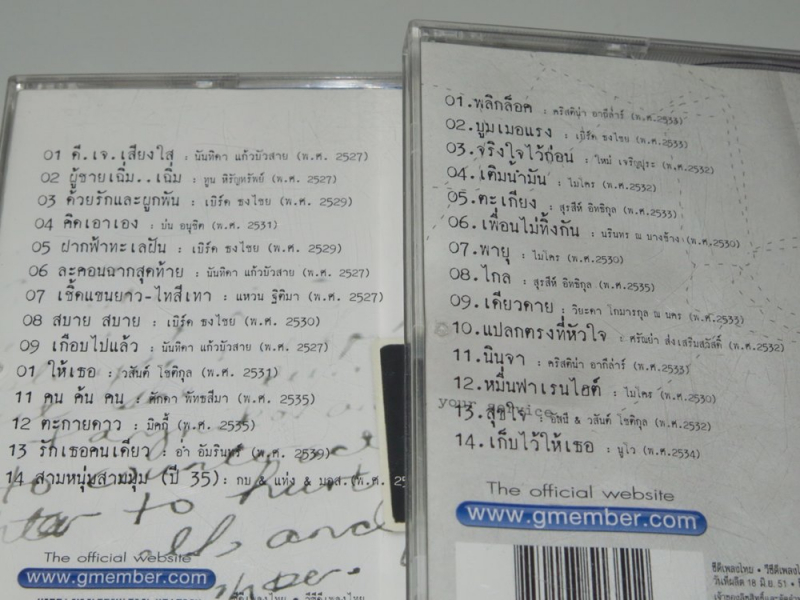 01 ดี.เจ.เสียงใส : นันทิดา แก้วบัวสาย (พ.ศ. 2527)
02 ผู้ชายเฉิ่ม..เฉิ่ม : ทูน หิรัญทรัพย์ (พ.ศ. 2527)
03 ด้วยรักและผูกพัน : เบิร์ด ธงไชย (พ.ศ. 2529)
04 คิดเอาเอง : ปน อนุชิต (พ.ศ. 2531)
05 ฝากฟ้าทะเลฝัน : เบิร์ด ธงไชย (พ.ศ. 2529)
06 ละคอนฉากสุดท้าย : นันทิดา แก้วบัวสาย (พ.ศ. 2527)
07 เชิ้ตแขนยาว-ไทสีเทา : แหวน ฐิติมา (พ.ศ. 2527)
08 สบาย สบาย : เบิร์ด ธงไชย (พ.ศ. 2530)
09 เกือบไปแล้ว : นันทิดา แก้วบัวสาย (พ.ศ. 2527)
01 ให้เธอ : วสันต์ โชติกุล (พ.ศ. 2531)
11 คน ค้น คน : ศักดา พัทธสีมา (พ.ศ. 2535)
12 ตะกายดาว : มิคกี้ (พ.ศ. 2535)
13 รักเธอคนเดียว : อ่ำ อัมรินทร์ (พ.ศ. 2539)
14 สามหนุ่มสามมุม (ปี 35) : กบ & แท่ง & มอส (พ.ศ. 25
to hurt
and
The official website
www.gmember.com
01.พลิกล็อค : คริสติน่า อากีล่าร์ (พ.ศ.2533)
02.บูมเมอแรง : เบิร์ด ธงไชย (พ.ศ.2533)
03.จริงใจไว้ก่อน : ใหม่ เจริญปุระ (พ.ศ.2532)
04.เติมน้ำมัน : ไมโคร (พ.ศ.2532)
05.ตะเกียง : สุรสีห์ อิทธิกุล (พ.ศ.2533)
06.เพื่อนไม่ทิ้งกัน : นรินทร ณ บางช้าง (พ.ศ.2530)
07.พายุ : ไมโคร (พ.ศ.2530)
08.ไกล : สุรสีห์ อิทธิกุล (พ.ศ.2535)
09.เดียวดาย : วิยะดา โกมารกุล ณ นคร (พ.ศ.2533)
10.แปลกตรงที่หัวใจ : ศรัณย่า ส่งเสริมสวัสดิ์ (พ.ศ.2532)
11.นินจา : คริสติน่า อากีล่าร์ (พ.ศ.2533)
12.หมื่นฟาเรนไฮต์ : ไมโคร (พ.ศ.2530)
your service
13.สุขใจ : อัสนี & วสันต์ โชติกุล (พ.ศ.2532)
14.เก็บไว้ให้เธอ : นูโว (พ.ศ.2534)
The official website
www.gmember.com
ซีดีเพลงไทย • วีซีดีเพลงไ
วันที่ผลิต 18 มิ.ย. 51 •